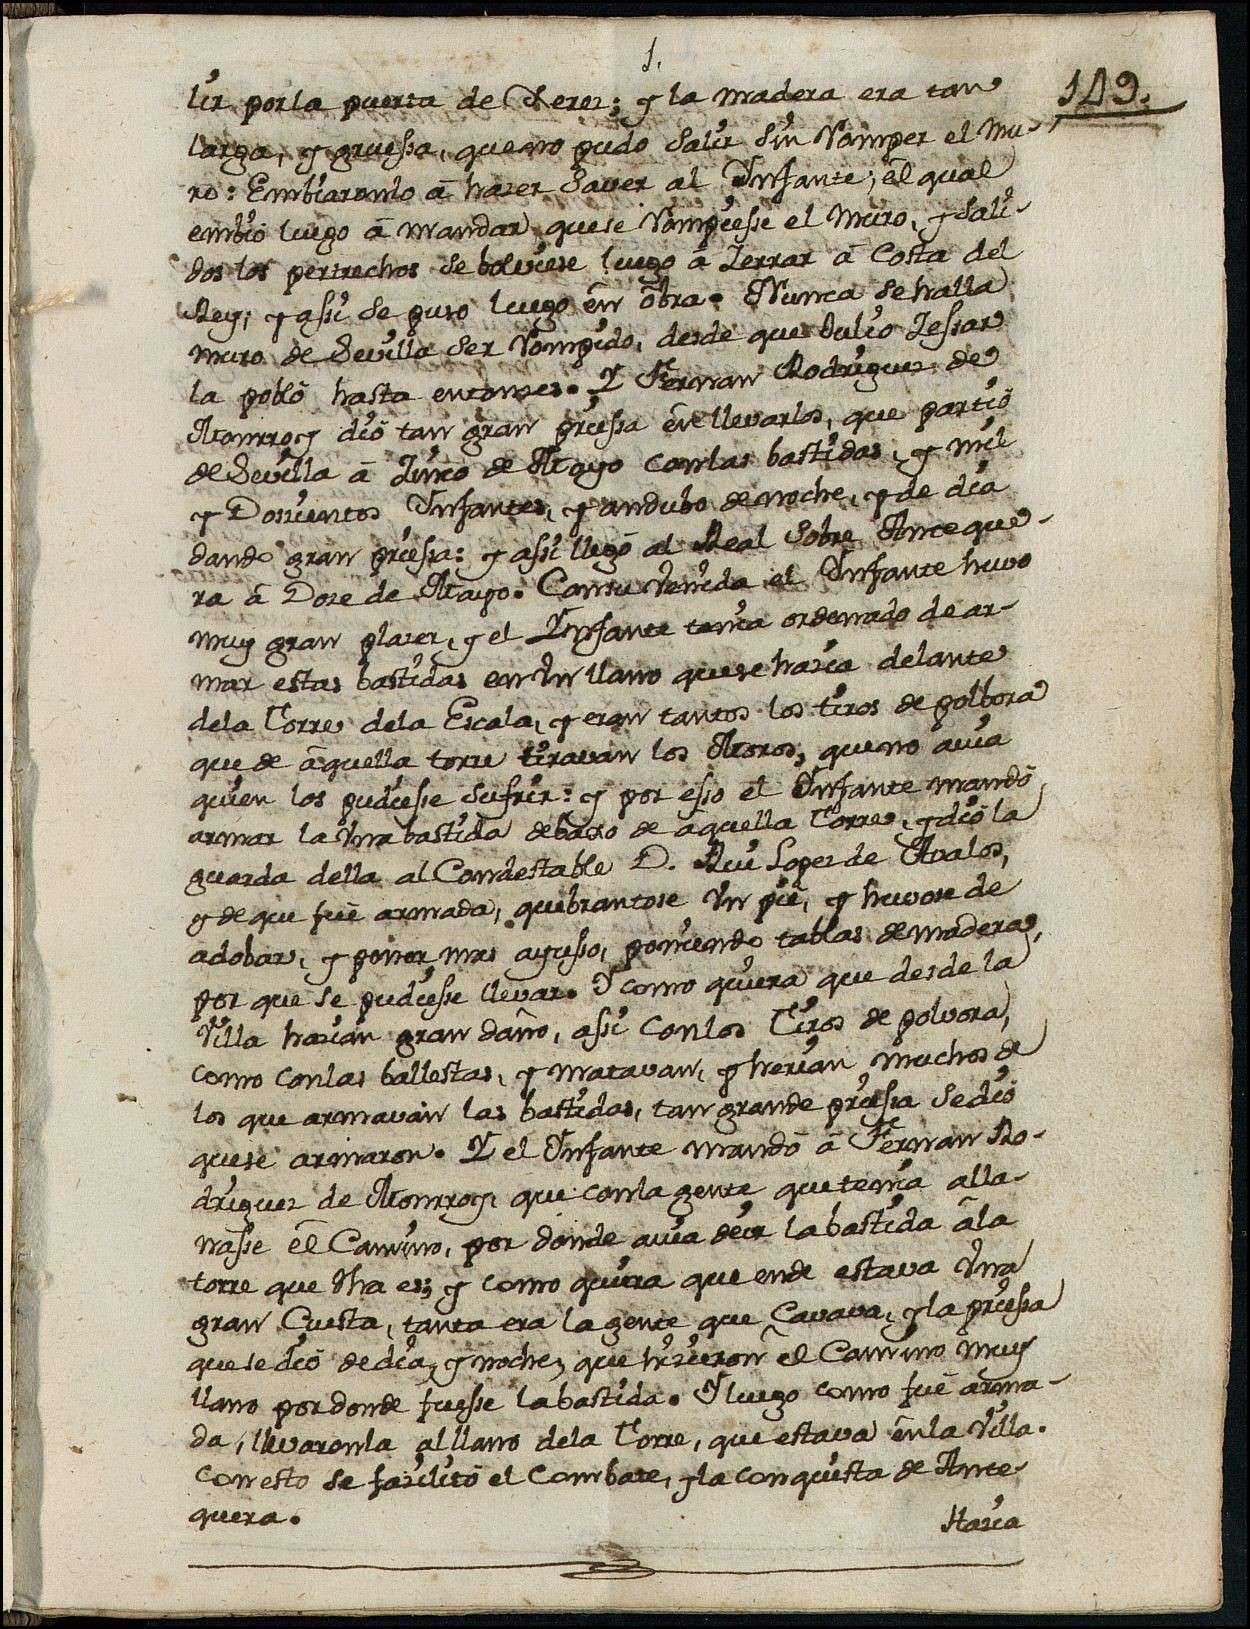 1.
149.
lir por la puerta de Xerez; y la madera era tan
larga, y gruessa, que no pudo salir sin romper el mu-
ro: Embiaronlo â hazer saver al Ynfante; êl qual
embiò luego â mandar, que se rompiesse el muro, y sali-
dos los pertrechos se bolviese luego â zerrar â Costa del
Rey; y assi se puso luego ên ôbra. Nunca se halla
muro de Sevilla ser rompido, desde que Julio Zessar
la poblò hasta entonzes. Y Fernan Rodriguez de
Monrroy diò tan gran priessa ên llevarlos, que partiò
de Sevilla â Zinco de Mayo con las bastidas, y mil
y Doszientos Ynfantes, y andubo de noche, y de dia
dando gran priessa: y assi llegò al Real sobre Anteque-
ra â Doze de Mayo. Con su venida el Ynfante huvo
muy gran plazer, y el Ynfante tenia ordenado de ar-
mar estas bastidas en un llano que se hazia delante
de la Torre de la Escala, y eran tantos los tiros de polbora
que de âquella torre tiravan los Moros, que no avia
quien los pudiesse sufrir: y por esso el Ynfante mandò
armar la una bastida debaxo de âquella Torre, y diò la
guarda della al Condestable D. Rui Lopez de Avalos,
y de que fuè armada, quebrantose un piè, y huvose de
adobar, y poner mas aguesso, poniendo tablas de madera,
por que se pudiesse llevar. Y como quiera que desde la
Villa hazian gran daño, assi con los Tiros de polvora,
como con las ballestas, y matavan, y herian muchos de
los que armavan las bastidas, tan grande priessa se diò
que se armaron. Y el Ynfante mandò â Fernan Ro-
driguez de Monrroy, que con la gente que tenia alla-
nasse êl Camino, por donde avia de ir la bastida â la
torre que dha es; y como quiera que ende estava una
gran Cuesta, tanta era la gente que Cavava, y la priessa
que se diò de dia, y noche, que hizieron êl Camino muy
llano por donde fuesse la bastida. Y luego como fuè arma-
da, llevaronla al llano de la Torre, que estava ên la Villa.
Con esto se fazilitò el Combate, y la conquista de Ante-
quera.
Hazia